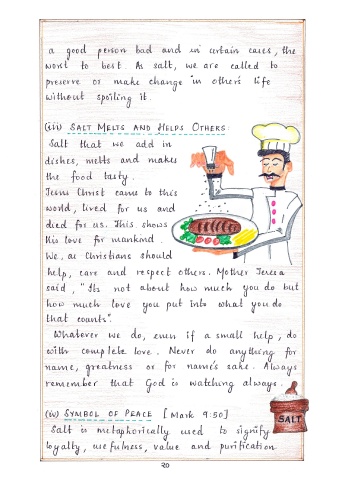 a good person bad and in certain cases, the
worst to best. As salt, we are called to
preserve or make change in other's life
without spoiling it.
(iii) SALT MELTS AND HELPS OTHERS
Salt that we add in
dishes, melts and makes
the food tasty.
Jesus Christ came to this
world, lived for us and
died for us. This shows
His love for mankind.
We, as Christians should
help, care and respect others. Mother Teresa
said, "Its not about how much you do but
how much love you put into what you do
that counts".
Whatever we do, even if a small help, do
with complete love. Never do anything for
name, greatness or for name's sake. Always
remember that God is watching always.
(iv) SYMBOL OF PEACE [Mark 9:50]
Salt is metaphorically used to signify
loyalty, usefulness, value and purification
SALT
20